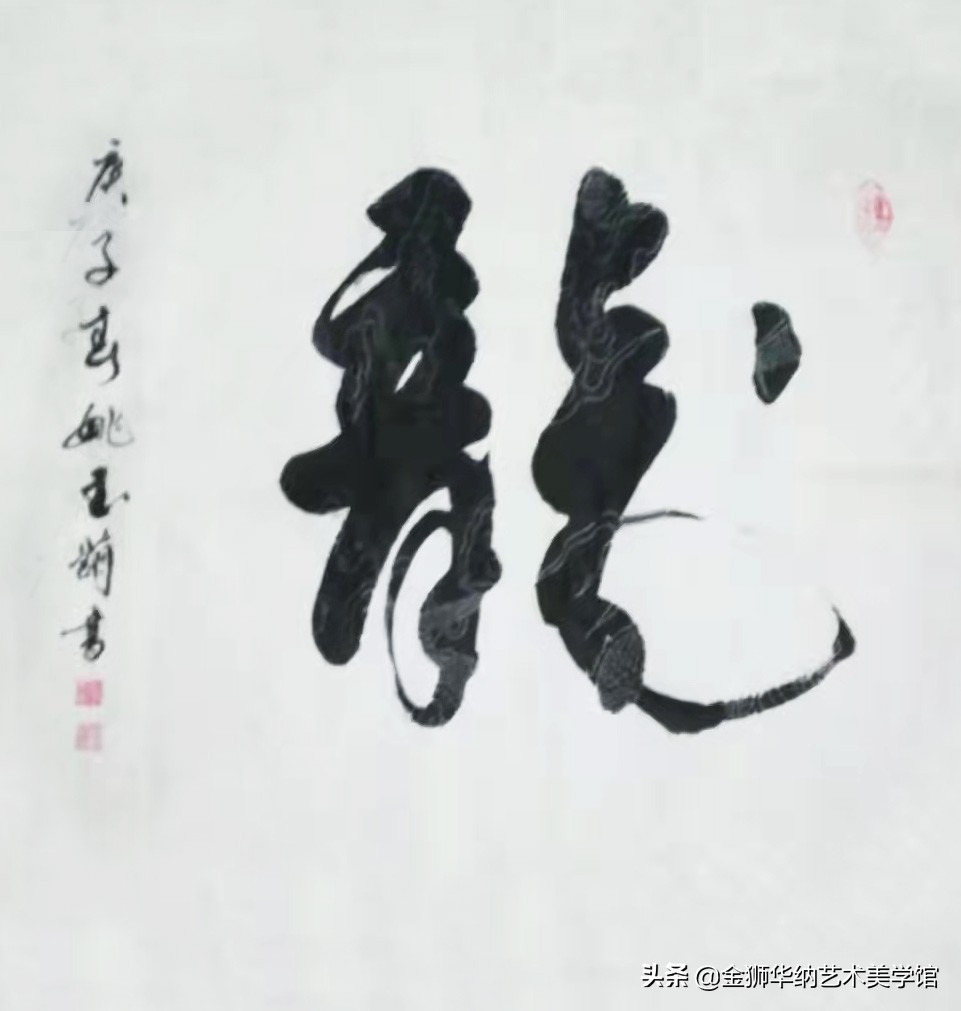 龍
庚子春姚玉蘭書
头条 @金狮华纳艺术美学馆